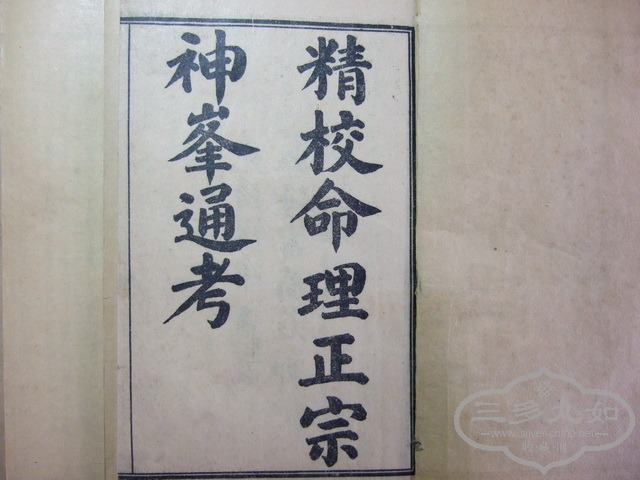 精校命理正宗
神峯通考
三多九如